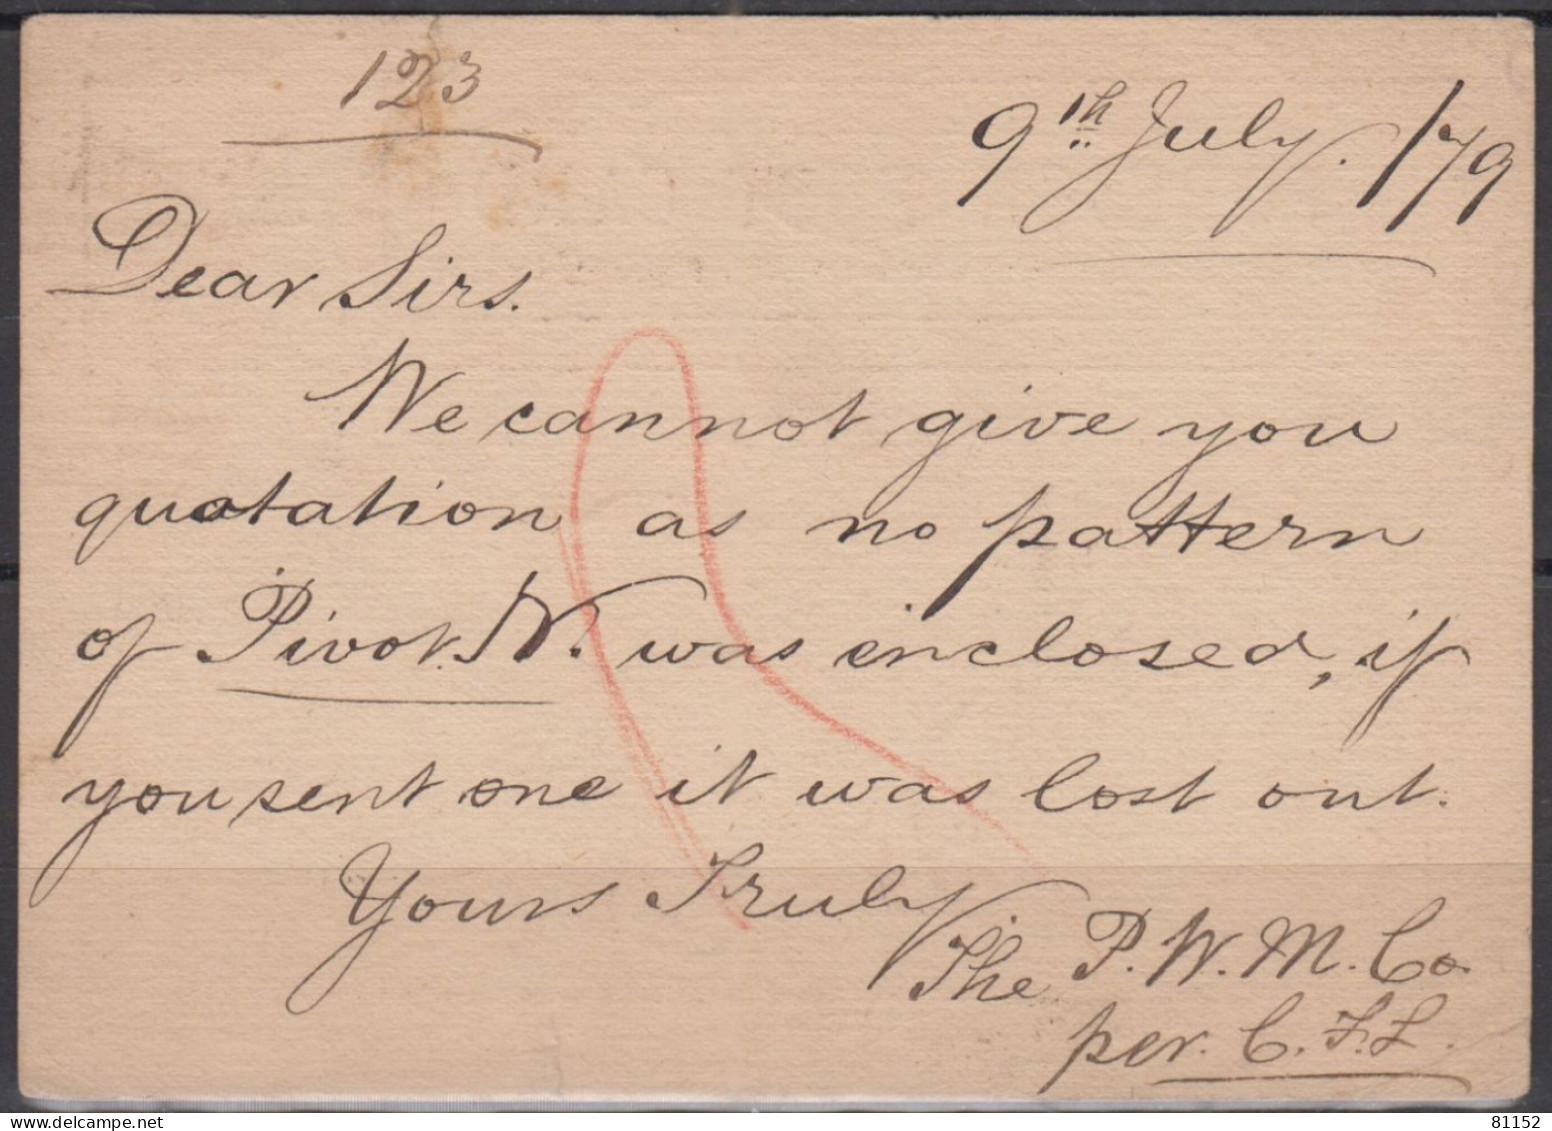 123
9th July. /79
Dear Sirs.
We cannot give you
quotation as no pattern
of Pivot. N. was enclosed, if
you sent one it was lost out.
Yours Truly
The P. W. M. Co.
per. C. F. L.
81152